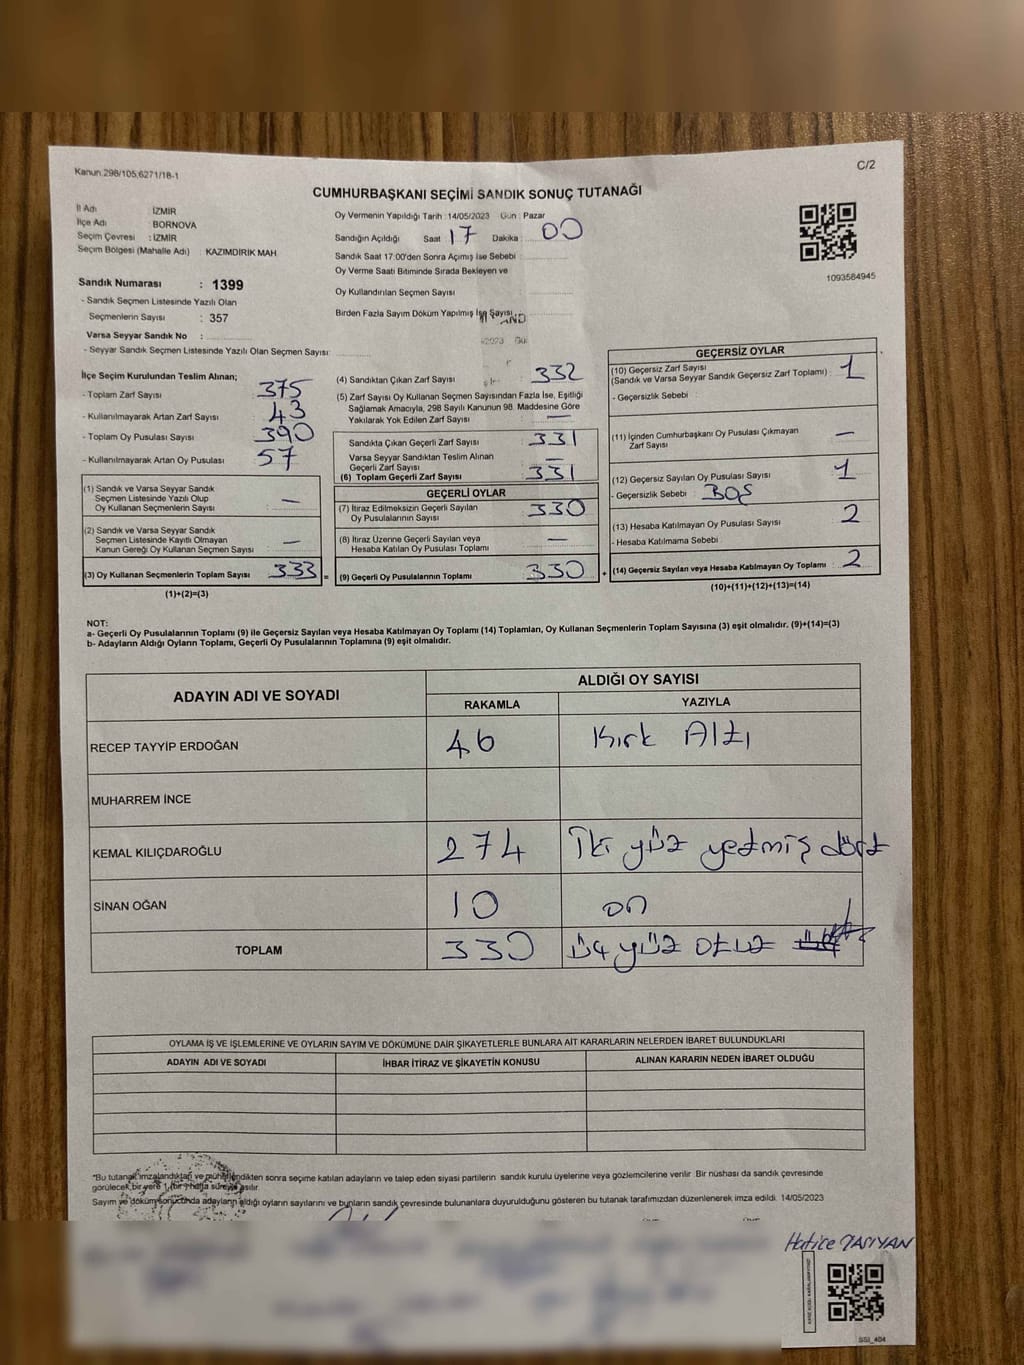 Kanun.298/105,6271/18-1
C/2
CUMHURBAŞKANI SEÇİMİ SANDIK SONUÇ TUTANAĞI
İl Adı : İZMİR
İlçe Adı : BORNOVA
Seçim Çevresi : İZMİR
Seçim Bölgesi (Mahalle Adı) KAZIMDİRİK MAH.
Sandık Numarası : 1399
- Sandık Seçmen Listesinde Yazılı Olan
Seçmenlerin Sayısı : 357
Varsa Seyyar Sandık No :
- Seyyar Sandık Seçmen Listesinde Yazılı Olan Seçmen Sayısı:
Oy Vermenin Yapıldığı Tarih : 14/05/2023 Gün : Pazar
Sandığın Açıldığı Saat 17 Dakika : 00
Sandık Saat 17:00'den Sonra Açımış İse Sebebi :
Oy Verme Saati Bitiminde Sırada Bekleyen ve
Oy Kullandırılan Seçmen Sayısı
Birden Fazla Sayım Döküm Yapılmış İse Sayısı
1093584945
İlçe Seçim Kurulundan Teslim Alınan;
- Toplam Zarf Sayısı : 375
- Kullanılmayarak Artan Zarf Sayısı : 43
- Toplam Oy Pusulası Sayısı : 390
- Kullanılmayarak Artan Oy Pusulası : 57
(1) Sandık ve Varsa Seyyar Sandık
Seçmen Listesinde Yazılı Olup
Oy Kullanan Seçmenlerin Sayısı : —
(2) Sandık ve Varsa Seyyar Sandık
Seçmen Listesinde Kayıtlı Olmayan
Kanun Gereği Oy Kullanan Seçmen Sayısı : —
(3) Oy Kullanan Seçmenlerin Toplam Sayısı : 333 =
(1)+(2)=(3)
(4) Sandıktan Çıkan Zarf Sayısı : 332
(5) Zarf Sayısı Oy Kullanan Seçmen Sayısından Fazla İse, Eşitliği
Sağlamak Amacıyla, 298 Sayılı Kanunun 98. Maddesine Göre
Yakılarak Yok Edilen Zarf Sayısı : —
Sandıkta Çıkan Geçerli Zarf Sayısı : 331
Varsa Seyyar Sandıktan Teslim Alınan
Geçerli Zarf Sayısı : —
(6) Toplam Geçerli Zarf Sayısı : 331
GEÇERLİ OYLAR
(7) İtiraz Edilmeksizin Geçerli Sayılan
Oy Pusulalarının Sayısı : 330
(8) İtiraz Üzerine Geçerli Sayılan veya
Hesaba Katılan Oy Pusulası Toplamı : —
(9) Geçerli Oy Pusulalarının Toplamı : 330 +
GEÇERSİZ OYLAR
(10) Geçersiz Zarf Sayısı
(Sandık ve Varsa Seyyar Sandık Geçersiz Zarf Toplamı) : 1
- Geçersizlik Sebebi :
(11) İçinden Cumhurbaşkanı Oy Pusulası Çıkmayan
Zarf Sayısı : —
(12) Geçersiz Sayılan Oy Pusulası Sayısı : 1
- Geçersizlik Sebebi : BOŞ
(13) Hesaba Katılmayan Oy Pusulası Sayısı : 2
- Hesaba Katılmama Sebebi :
(14) Geçersiz Sayılan veya Hesaba Katılmayan Oy Toplamı : 2
(10)+(11)+(12)+(13)=(14)
NOT:
a- Geçerli Oy Pusulalarının Toplamı (9) ile Geçersiz Sayılan veya Hesaba Katılmayan Oy Toplamı (14) Toplamları, Oy Kullanan Seçmenlerin Toplam Sayısına (3) eşit olmalıdır. (9)+(14)=(3)
b- Adayların Aldığı Oyların Toplamı, Geçerli Oy Pusulalarının Toplamına (9) eşit olmalıdır.
ADAYIN ADI VE SOYADI
ALDIĞI OY SAYISI
RAKAMLA YAZIYLA
RECEP TAYYİP ERDOĞAN 46 Kırk Altı
MUHARREM İNCE
KEMAL KILIÇDAROĞLU 274 İki yüz yetmiş dört
SİNAN OĞAN 10 on
TOPLAM 330 üç yüz otuz
OYLAMA İŞ VE İŞLEMLERİNE VE OYLARIN SAYIM VE DÖKÜMÜNE DAİR ŞİKAYETLERLE BUNLARA AİT KARARLARIN NELERDEN İBARET BULUNDUKLARI
ADAYIN ADI VE SOYADI İHBAR İTİRAZ VE ŞİKAYETİN KONUSU ALINAN KARARIN NEDEN İBARET OLDUĞU
"Bu tutanak imzalandıktan ve mühürlendikten sonra seçime katılan adayların ve talep eden siyasi partilerin sandık kurulu üyelerine veya gözlemcilerine verilir. Bir nüshası da sandık çevresinde
görülecek bir yere 1 (bir) hafta süreyle asılır.
Sayım ve döküm sonucunda adayların aldığı oyların sayılarını ve bunların sandık çevresinde bulunanlara duyurulduğunu gösteren bu tutanak tarafımızdan düzenlenerek imza edildi. 14/05/2023
Hatice TAŞIYAN
SSI_404